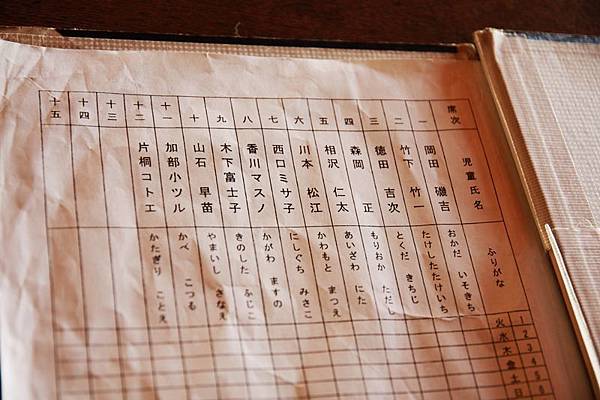 席次 児童氏名 ふりがな 1 2 3 4 5 6
火 水 木 金 土 日
一 岡田 磯吉 おかだ いそきち
二 竹下 竹一 たけしたたけいち
三 徳田 吉次 とくだ きちじ
四 森岡 正 もりおか ただし
五 相沢 仁太 あいざわ にた
六 川本 松江 かわもと まつえ
七 西口ミサ子 にしぐち みさこ
八 香川マスノ かがわ ますの
九 木下富士子 きのした ふじこ
十 山石 早苗 やまいし さなえ
十一 加部小ツル かべ こつる
十二 片桐コトエ かたぎり ことえ
十三
十四
十五